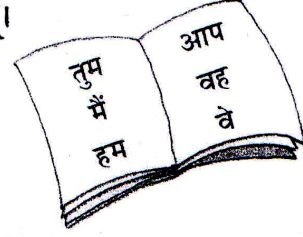 ।
तुम
मैं
हम
आप
वह
वे